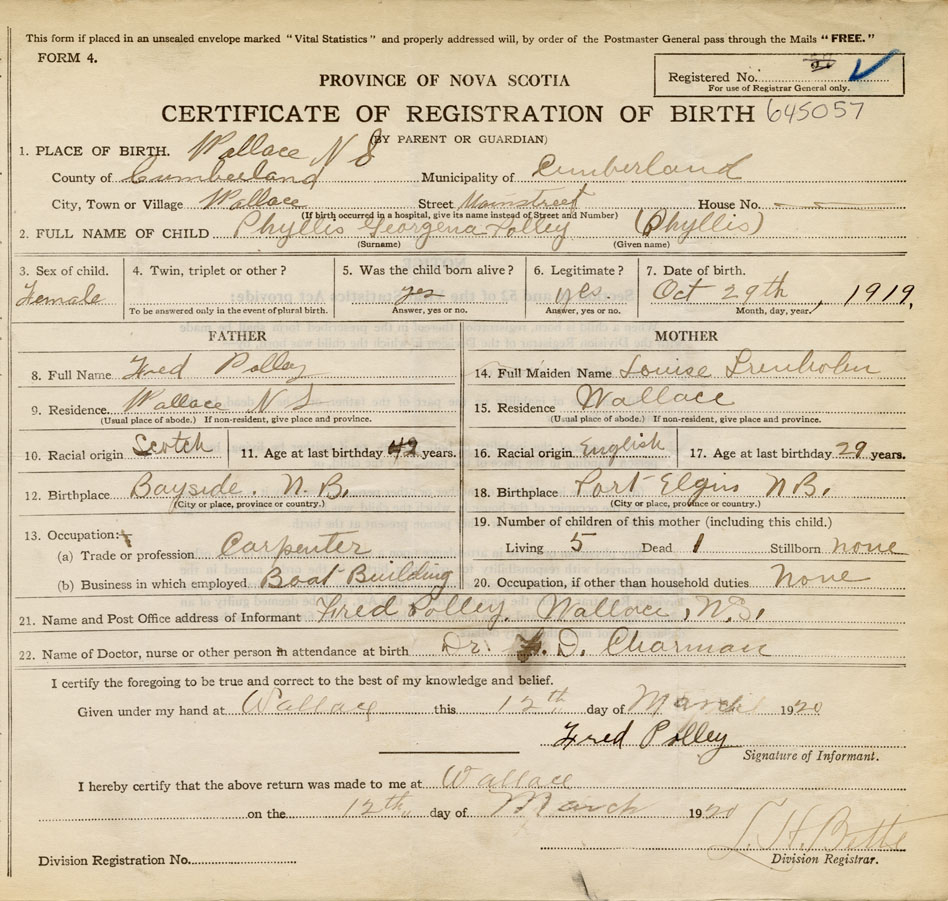 This form if placed in an unsealed envelope marked "Vital Statistics" and properly addressed will, by order of the Postmaster General pass through the Mails "FREE."
FORM 4.
Registered No.
For use of Registrar General only.
PROVINCE OF NOVA SCOTIA
CERTIFICATE OF REGISTRATION OF BIRTH 645057
(BY PARENT OR GUARDIAN)
1. PLACE OF BIRTH. Wallace N S
County of Cumberland Municipality of Cumberland
City, Town or Village Wallace Street Mainstreet House No.
(If birth occurred in a hospital, give its name instead of Street and Number)
2. FULL NAME OF CHILD Phyllis Georgena Polley (Phyllis)
(Surname) (Given name)
3. Sex of child. 4. Twin, triplet or other? 5. Was the child born alive? 6. Legitimate? 7. Date of birth.
Female yes yes. Oct 29th, 1919
To be answered only in the event of plural birth. Answer, yes or no. Answer, yes or no. Month, day, year.
FATHER MOTHER
8. Full Name Fred Polley 14. Full Maiden Name Louise Trenholm
9. Residence. Wallace N S 15. Residence Wallace
(Usual place of abode.) If non-resident, give place and province. (Usual place of abode.) If non-resident, give place and province.
10. Racial origin Scotch 11. Age at last birthday 42 years. 16. Racial origin English 17. Age at last birthday 29 years.
12. Birthplace Bayside. N.B. 18. Birthplace Port Elgin N.B.
(City or place, province or country.) (City or place, province or country.)
13. Occupation: 19. Number of children of this mother (including this child.)
(a) Trade or profession Carpenter Living 5 Dead 1 Stillborn none
(b) Business in which employed Boat Building 20. Occupation, if other than household duties None
21. Name and Post Office address of Informant Fred Polley. Wallace, N.S.
22. Name of Doctor, nurse or other person in attendance at birth Dr. D. Charman
I certify the foregoing to be true and correct to the best of my knowledge and belief.
Given under my hand at Wallace this 12th day of March 1920
Fred Polley
Signature of Informant.
I hereby certify that the above return was made to me at Wallace
on the 12th day of March 1920
L. H. Betts
Division Registration No. Division Registrar.